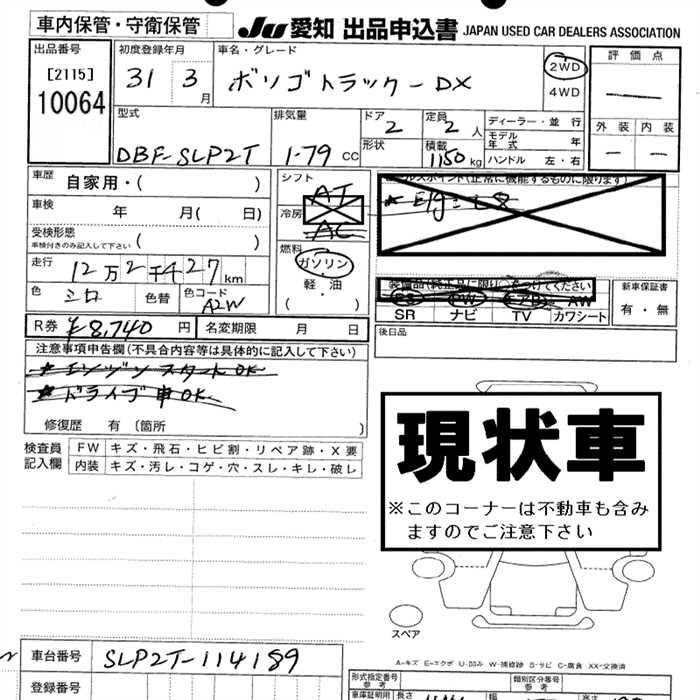 車内保管・守衛保管
JU 愛知 出品申込書 JAPAN USED CAR DEALERS ASSOCIATION
出品番号
[2115]
10064
初度登録年月
31 3月
車名・グレード
ボンゴトラック-DX
2WD
4WD
評価点
外装 内装
型式
DBF-SLP2T
排気量
1.79 CC
ドア 2
形状
定員 2人
積載 1150kg
ディーラー・並行
モデル年式 年
ハンドル 左・右
車歴 自家用・( )
車検 年 月( 日)
受検形態
車検付きのみ記入して下さい ( )
走行 12万2千427km
色 シロ 色替 色コード A2W
シフト
AT
冷房
AC
燃料
ガソリン
軽・油
( )
R券 ¥8,740 円 名変期限 月 日
セールスポイント(正常に機能するものに限ります)
装備品(純正品に限り)○をつけてください
PS PW エアB AW
SR ナビ TV カワシート
新車保証書
有・無
後日品
注意事項申告欄(不具合内容等は具体的に記入して下さい)
★エンジンスタートOK
★ドライブ車OK
修復歴 有 〔箇所 〕
検査員記入欄
FW キズ・飛石・ヒビ割・リペア跡・X要
内装 キズ・汚レ・コゲ・穴・スレ・キレ・破レ
現状車
※このコーナーは不動車も含み
ますのでご注意下さい
スペア
A-キズ E-エクボ U-凹み W-補修跡 S-サビ C-腐食 XX-交換済
車台番号 SLP2T-114189
登録番号
形式指定番号
参考
類別区分番号
参考
車庫証明用 長さ